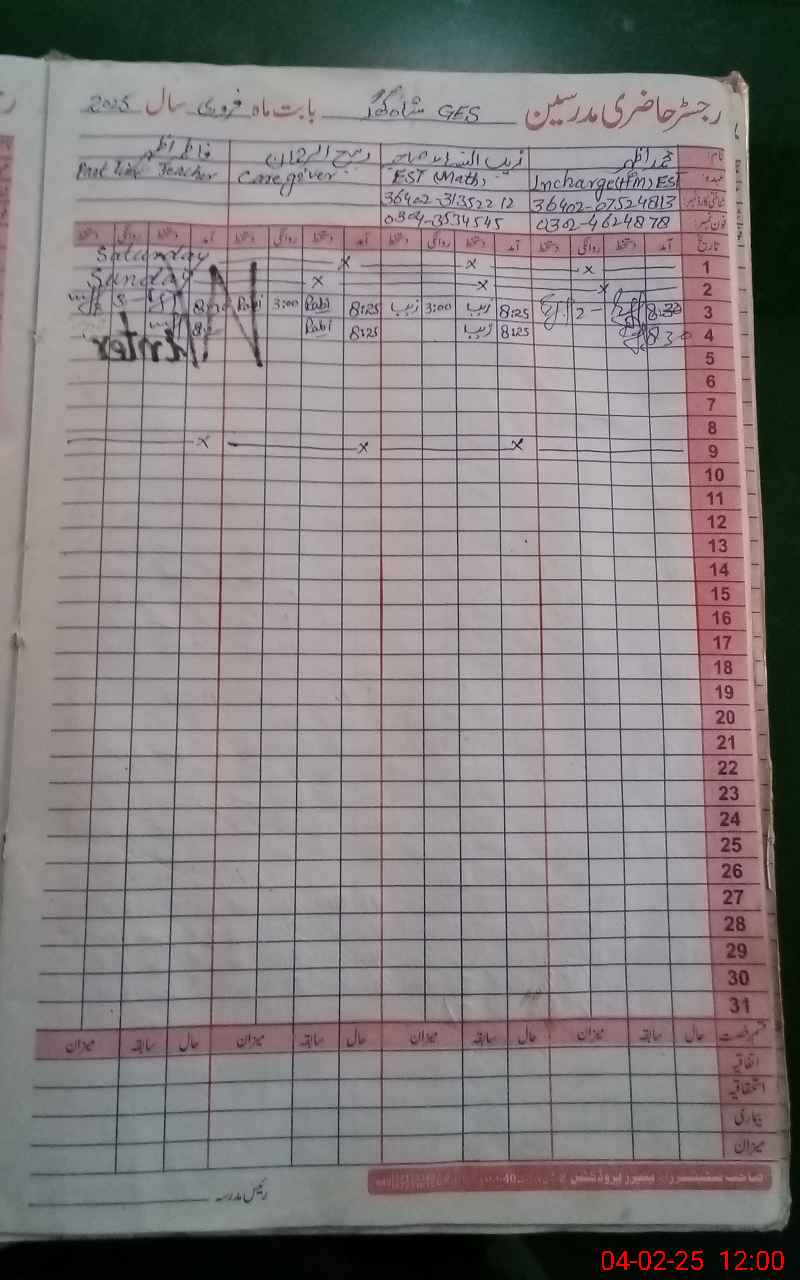 رجسٹر حاضری مدرسین GES شاہ بابت ماہ فروری سال 2025
نام: محمد اظہر زیب النساء ربیع الرحمان فاطمہ اظہر
عہدہ: Incharge(Hm) EST EST (Math) Caregiver Part Time Teacher
36402-67524813 36402-3135221 2
فون نمبر: 0302-4624878 0304-3534545
تاریخ آمد دستخط روانگی دستخط آمد دستخط روانگی دستخط آمد دستخط روانگی دستخط آمد دستخط روانگی دستخط
1 x x x Saturday
2 x x x Sunday
3 8:30 2 8:25 زیب 3:00 زیب 8:25 Rabi 3:00 Rabi
4 8 30 8:25 زیب 8:25 Rabi
Winter
5
6
7
8
9 x x x
10
11
12
13
14
15
16
17
18
19
20
21
22
23
24
25
26
27
28
29
30
31
قسم رخصت حال سابقہ میزان حال سابقہ میزان حال سابقہ میزان حال سابقہ میزان
اتفاقیہ
استحقاقیہ
بیماری
میزان
رئیس مدرسہ
04-02-25 12:00